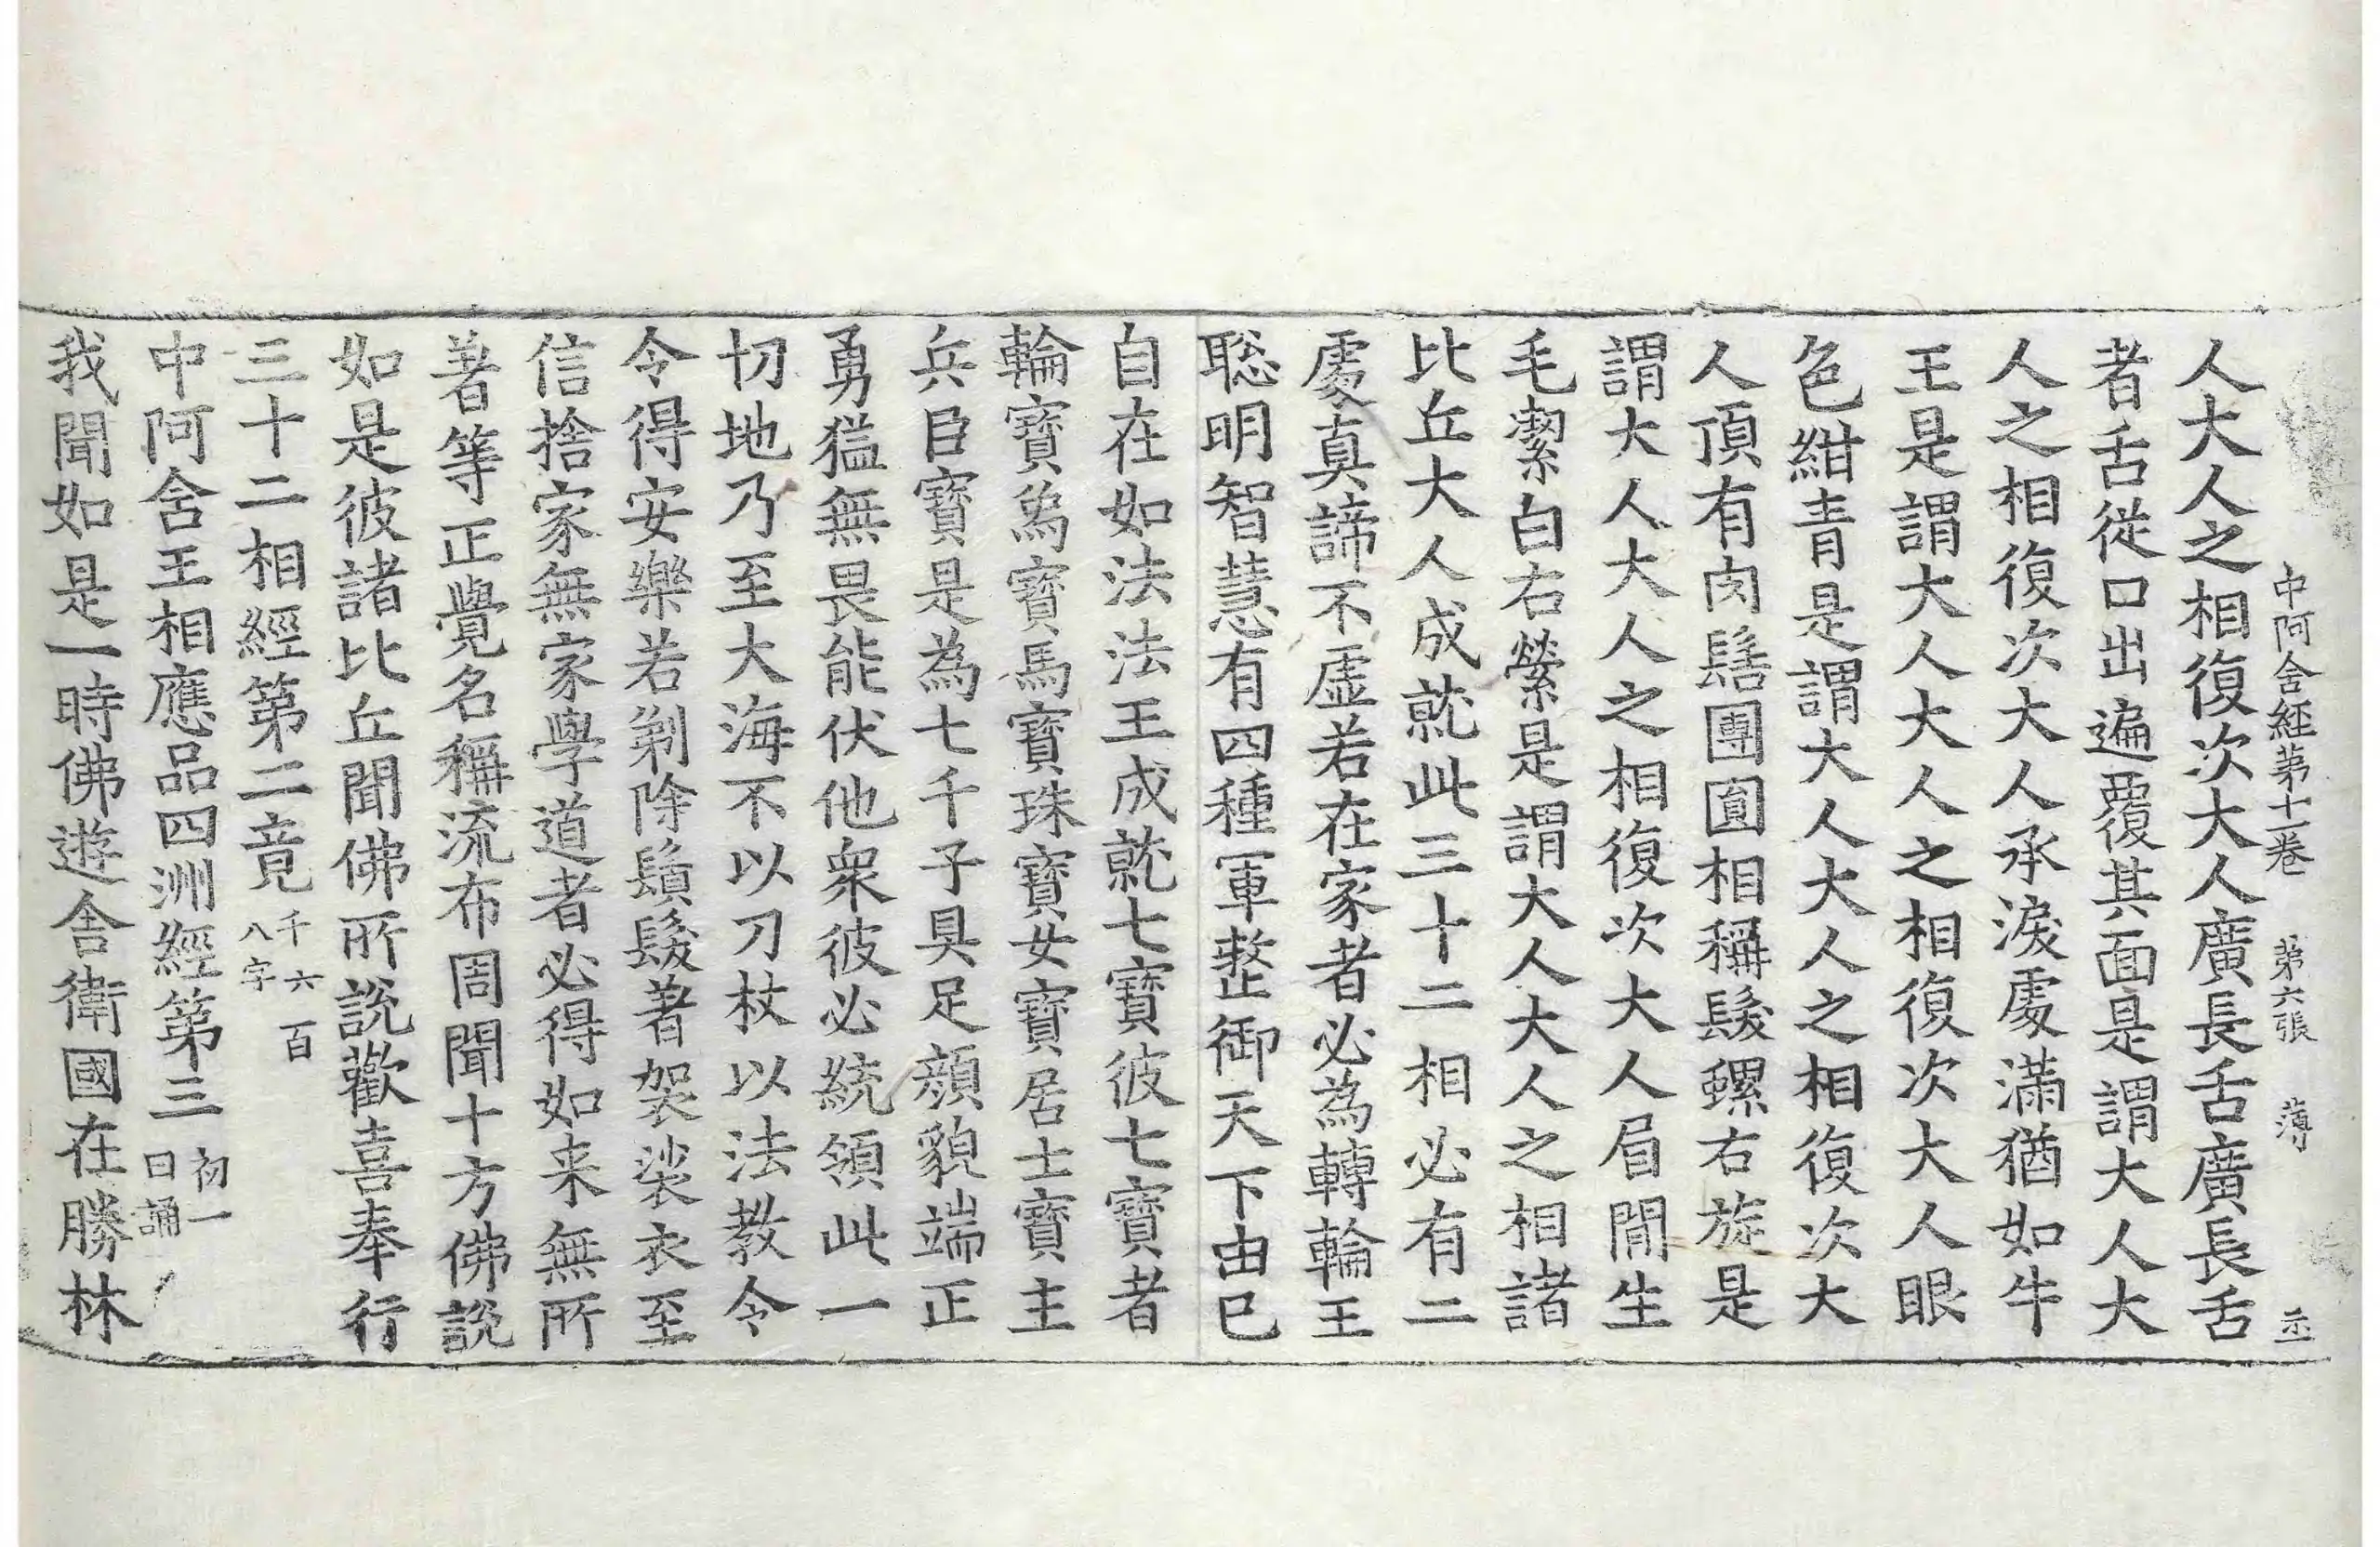 中阿含經第十一卷 第六張 薄
人大人之相復次大人廣長舌廣長舌
者舌從口出遍覆其面是謂大人大
人之相復次大人承淚處滿猶如牛
王是謂大人大人之相復次大人眼
色紺青是謂大人大人之相復次大
人頂有肉髻團圓相稱髮螺右旋是
謂大人大人之相復次大人眉間生
毛潔白右縈是謂大人大人之相諸
比丘大人成就此三十二相必有二
處真諦不虛若在家者必為轉輪王
聡明智慧有四種軍整御天下由己
自在如法法王成就七寶彼七寶者
輪寶為寶馬寶珠寶女寶居士寶主
兵臣寶是為七千子具足顏貌端正
勇猛無畏能伏他衆彼必統領此一
切地乃至大海不以刀杖以法教令
令得安樂若剃除鬚髮著袈裟衣至
信捨家無家學道者必得如来無所
著等正覺名稱流布周聞十方佛說
如是彼諸比丘聞佛所說歡喜奉行
三十二相經第二竟 千六百八字
中阿含王相應品四洲經第三 初一日誦
我聞如是一時佛遊舍衛國在勝林